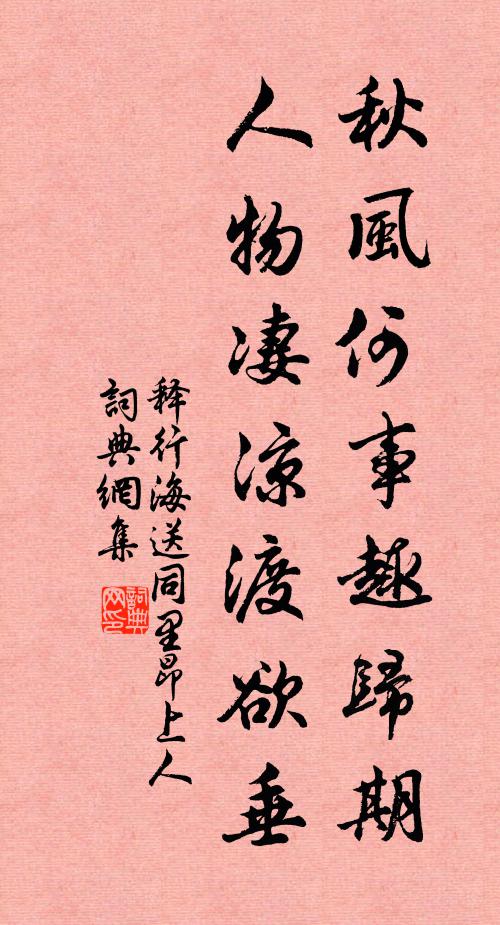 秋風何事趣歸期
人物凄凉渡欲垂
释行海送同里昂上人
詞典網集
詞典
网印